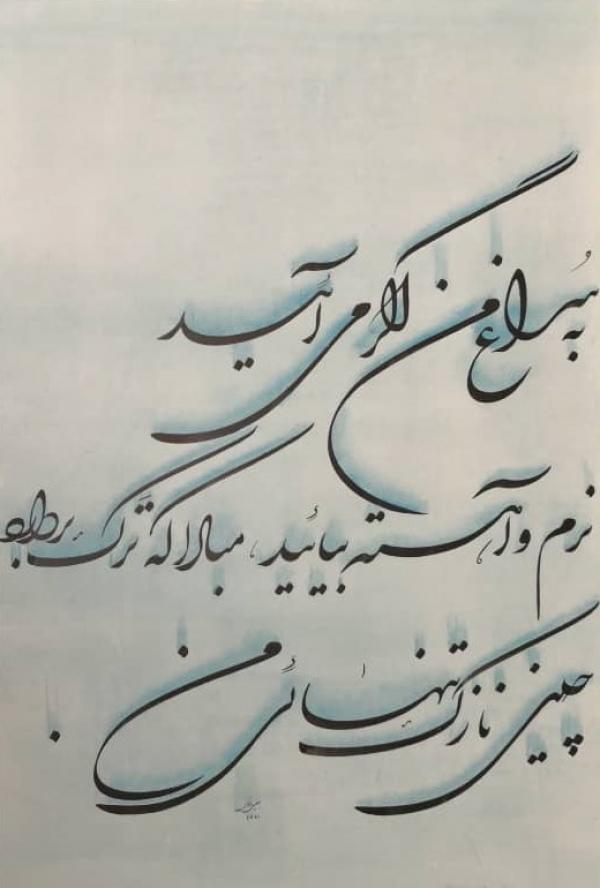 به سُراغ من اگر می آئید
نرم و آهسته بیائید، مبادا که تَرَک بردارد
چینی نازک تنهائی من.